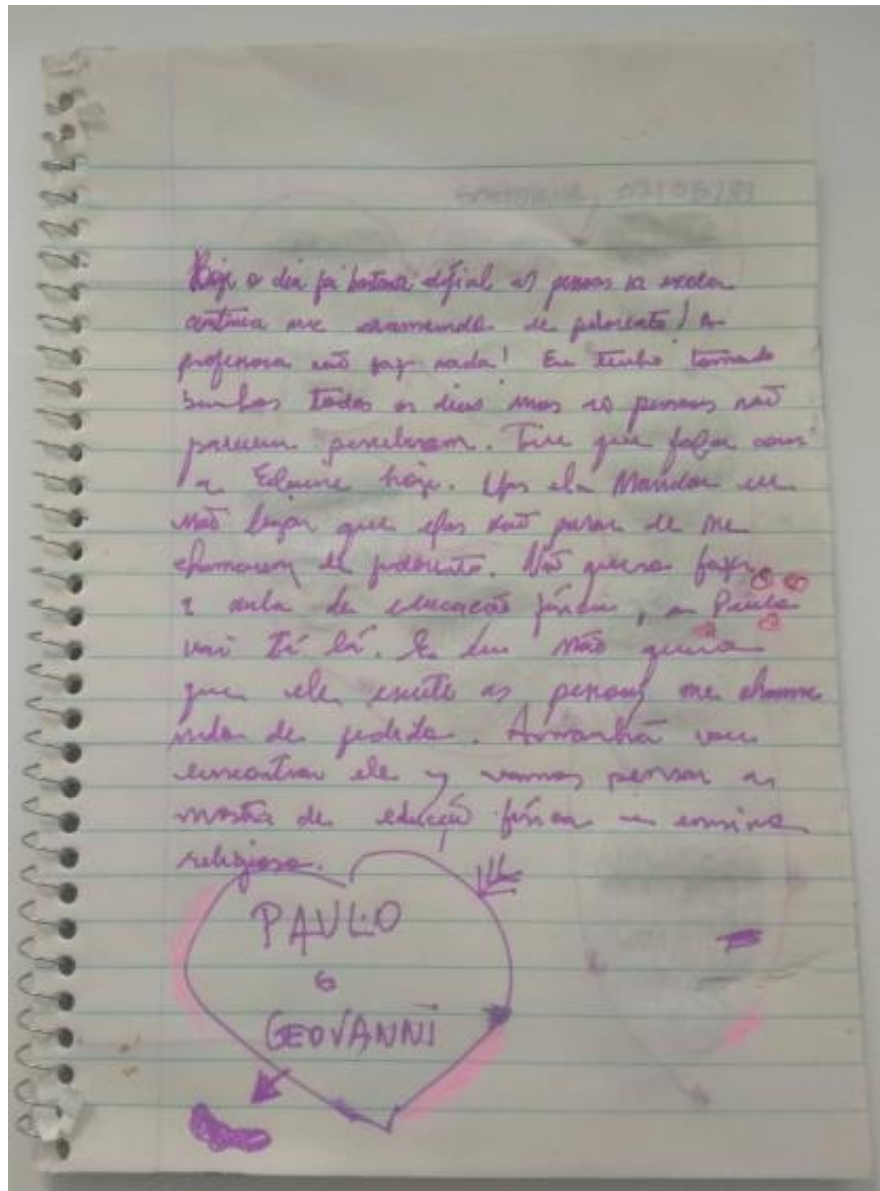 Hoje o dia foi bastante difícil as pessoas na escola
continua me chamando de fedorento! A
professora não faz nada! Eu tenho tomado
banhos todos os dias mas as pessoas não
parecem perceberam. Tive que falar com
a hoje. ela Mandou eu
não ligar que elas não parar de me
chamarem de fedorento. Não quero fazer
a aula de educação física, o Paulo
vai tá lá. E eu não quero
que ele escute as pessoas me chama
ndo de fedido. Amanhã vou
encontrar ele y vamos pensar a
mostra de edução física e ensino
religioso.
PAULO
e
GEOVANNI